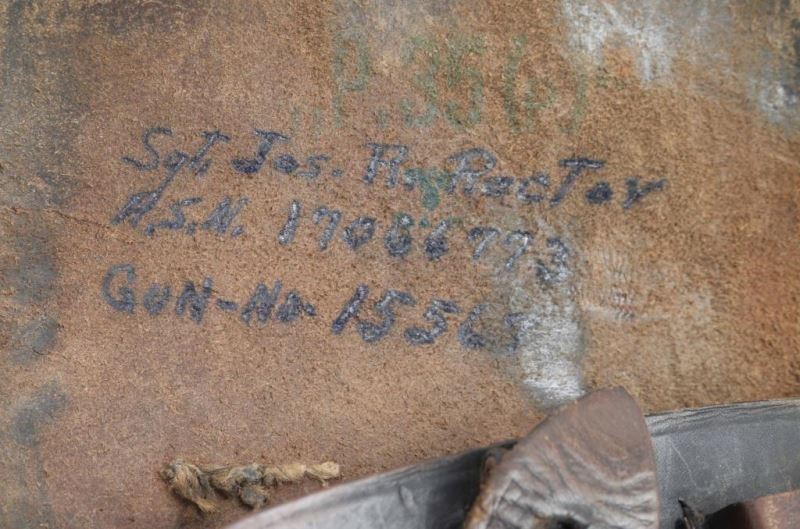 P.35(e)
Sgt. Jos. R. Proctor
A.S.N. 17086793
GUN-No 15565